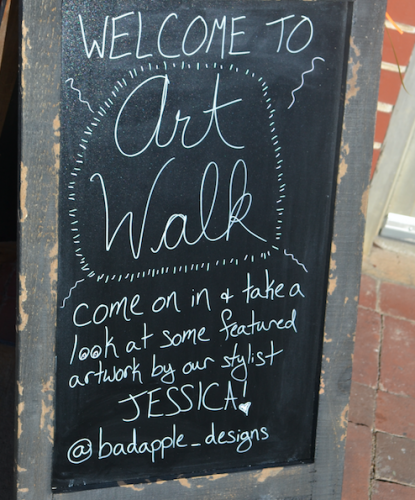 WELCOME TO
Art
Walk
come on in & take a
look at some featured
artwork by our stylist
JESSICA!
@badapple_designs